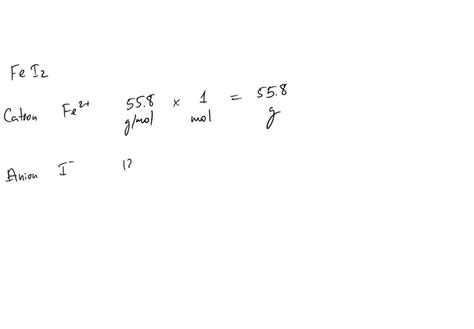 FeI₂
Cation Fe²⁺ 55.8 g/mol × 1 mol = 55.8 g
Anion I⁻ 12